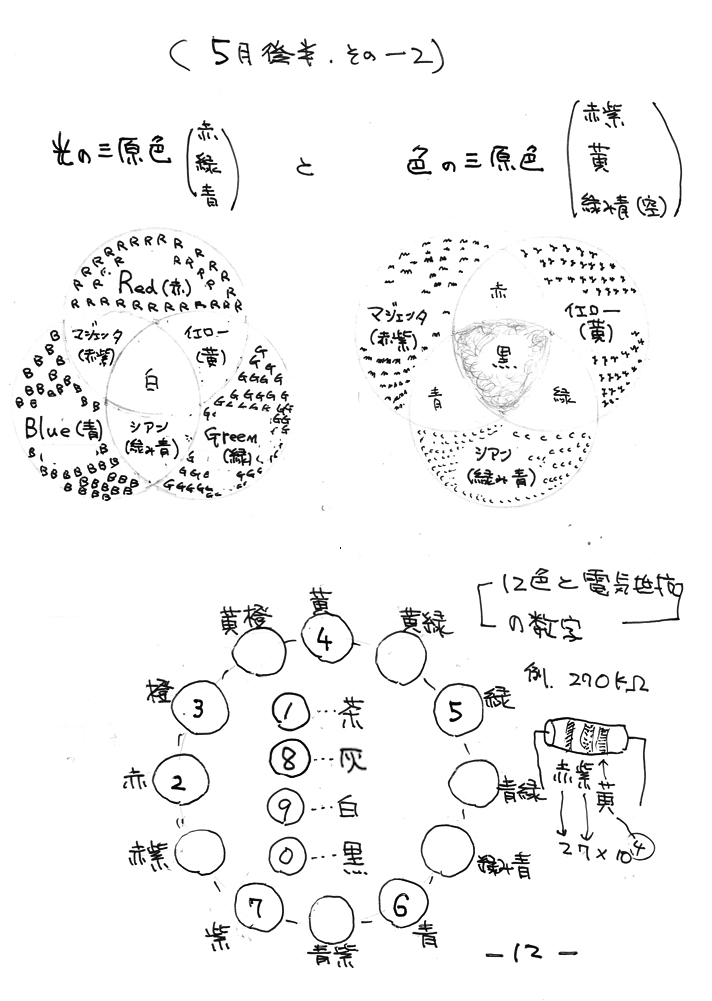 (5月後半.その-2)
光の三原色(赤
緑
青)
と
色の三原色(赤紫
黄
緑み青(空))
Red(赤)
マジェンタ
(赤紫)
イエロー
(黄)
白
Blue(青)
シアン
(緑み青)
Green
(緑)
赤
マジェンタ
(赤紫)
イエロー
(黄)
黒
青
緑
シアン
(緑み青)
12色と電気抵抗
の数字
例. 270kΩ
赤紫
黄
27×10④
黄橙
黄
4
黄緑
橙
3
5
緑
赤
2
青緑
赤紫
緑み青
紫
7
青紫
6
青
1…茶
8…灰
9…白
0…黒
-12-